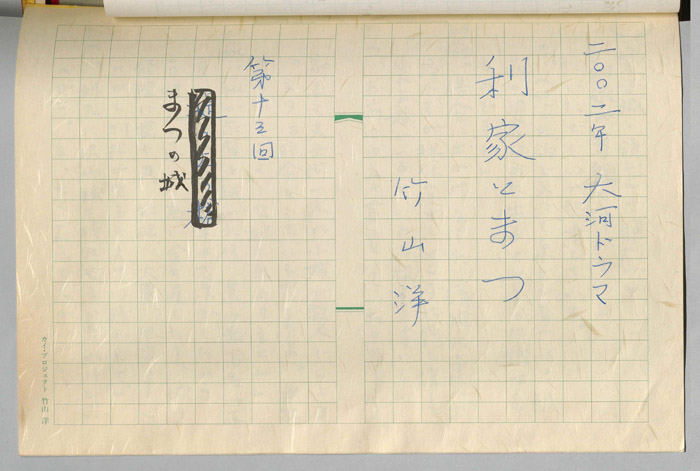 二〇〇二年 大河ドラマ
利家とまつ
竹山洋
第十五回
まつの城
カイ・プロジェクト 竹山 洋